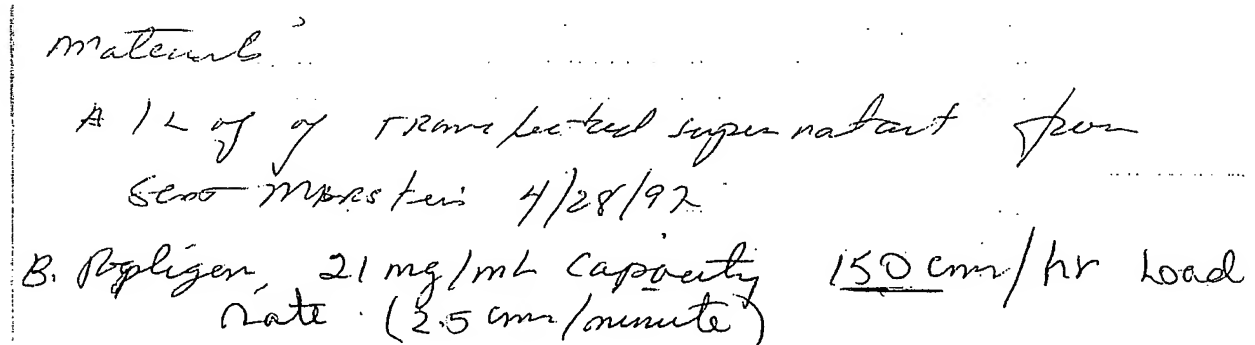 Materials
A 1L of of Transfected supernatant from
4/28/92
B. Repligen, 21 mg/mL Capacity 150 cm/hr Load
rate (2.5 cm/minute)